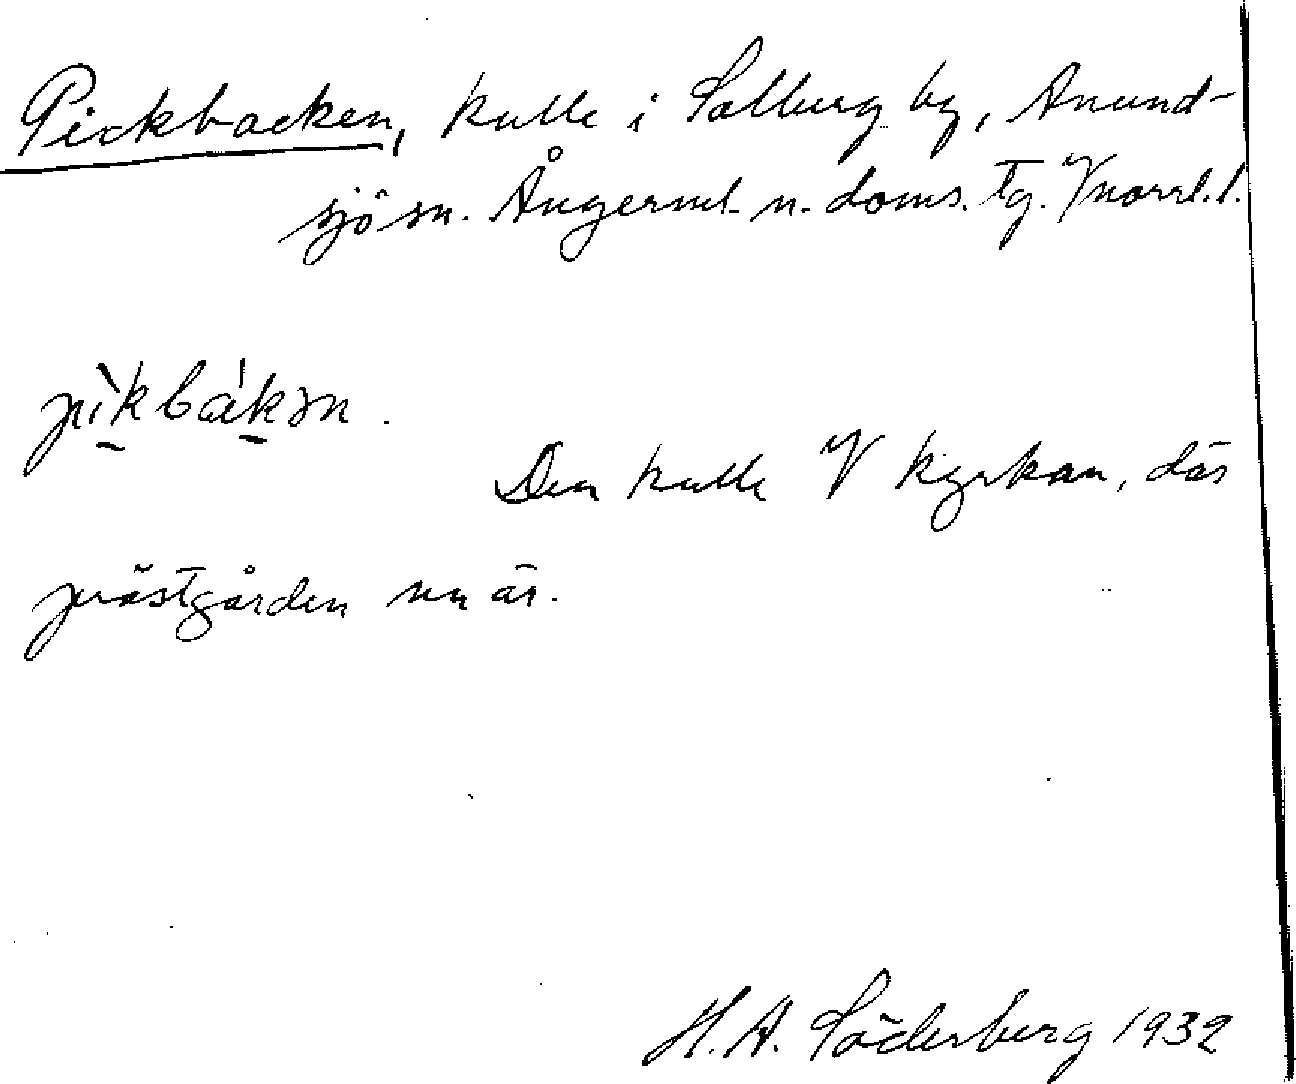 Pickbacken, kulle i Solberg by, Anund-
sjö sn. Ångerml. n. doms. tg. Vnorrl. l.
pìkbák̠ən.
Den kulle V kyrkan, där
prästgården nu är.
H. A. Söderberg 1932